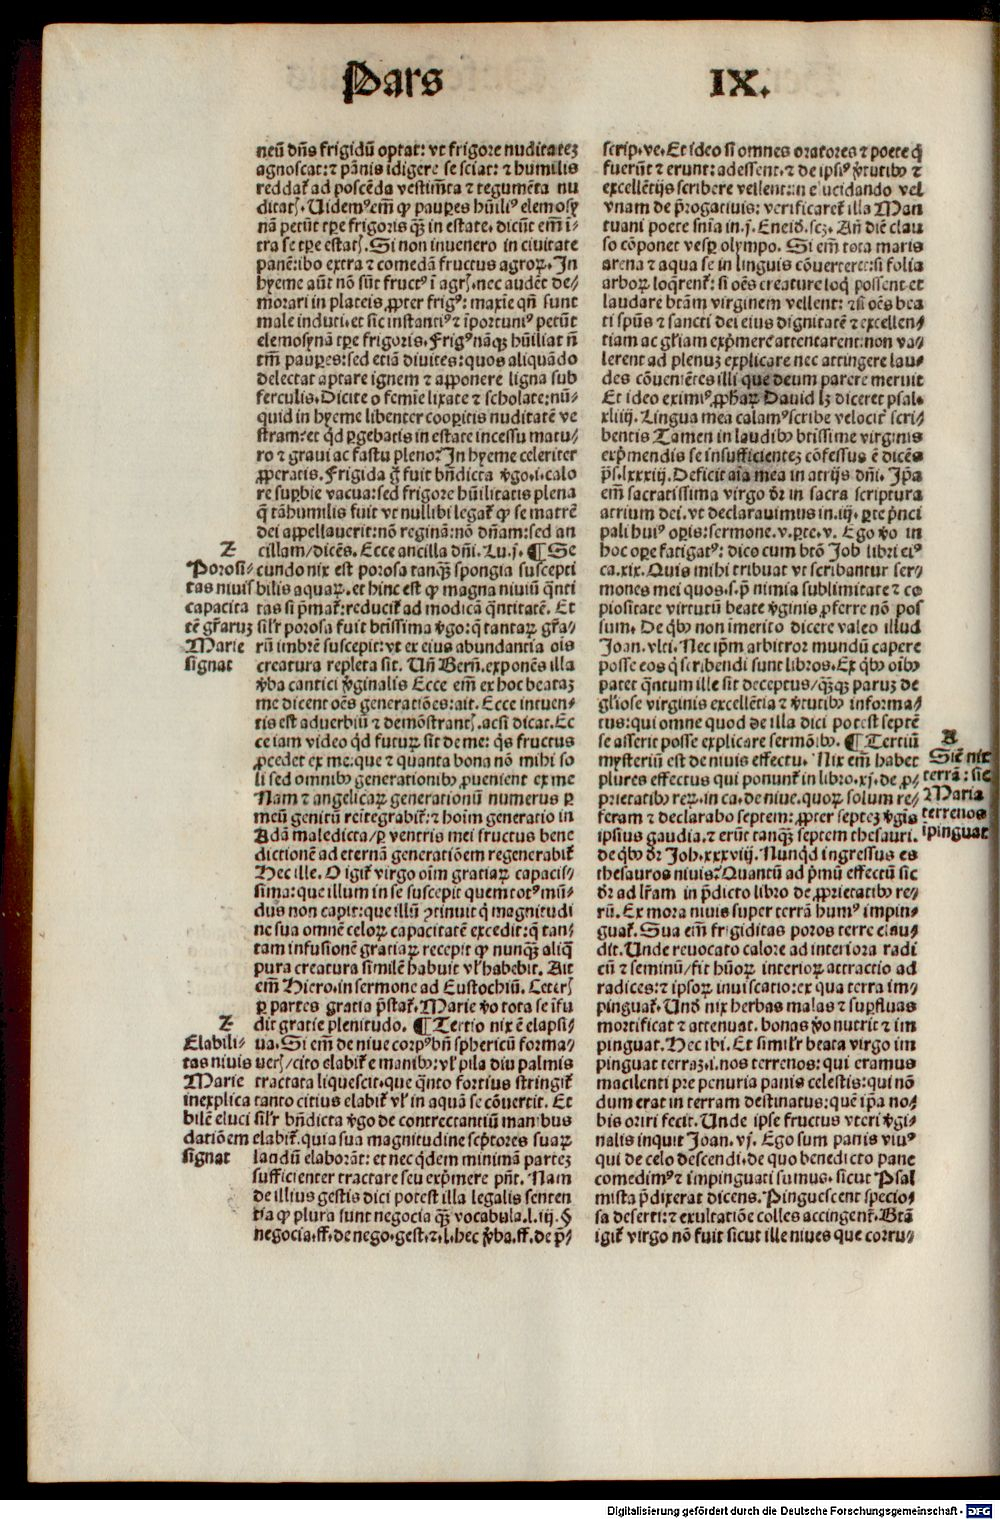 Pars IX.
neū dn̄s frigidū optat: vt frigore nuditatez
agnoscat: ⁊ pānis īdigere se sciat: ⁊ humilis
reddat᷑ ad poscēda vestimēta ⁊ tegumēta nu
ditatꝭ. Uidemꝰ em̄ ꝙ paupes hūilꝰ elemosy
nā petūt tꝑe frigoris qꝫ in estate. dicūt em̄ ī⸗
tra se tꝑe estatꝭ. Si non inuenero in ciuitate
panē: ibo extra ⁊ comedā fructus agroꝝ. In
hyeme aūt nō sūt fructꝰ ī agrꝭ. nec audēt de⸗
morari in plateis ꝓpter frigꝰ: maxīe qn̄ sunt
male induti. et sic instantiꝰ ⁊ īportuniꝰ petūt
elemosynā tꝑe frigoris. Frigꝰ nāqꝫ hūiliat n̄
tm̄ paupes: sed etiā diuites: quos aliquādo
delectat aptare ignem ⁊ apponere ligna sub
ferculis. Dicite o femīe lixate ⁊ scholate: nū⸗
quid in hyeme libenter cooperitis nuditatē ve
stram: et qd̄ pgebatis in estate incessu matu⸗
ro ⁊ graui ac fastu pleno? In hyeme celeriter
ꝓperatis. Frigida g̊ fuit bn̄dicta v̓go. i. calo
re supbie vacua: sed frigore hūilitatis plena
q̄ tāhumilis fuit vt nullibi legat᷑ ꝙ se matrē
dei appellauerit: nō reginā: nō dn̄am: sed an
cillam/dicēs. Ecce ancilla dn̄i. Lu. j. ¶ Se
cundo nix est porosa tanqꝫ spongia suscepti
bilis aquaꝝ. et hinc est ꝙ magna niuiū qn̄ti
tas si p̄mat᷑: reducit᷑ ad modicā qn̄titatē. Et
sil̓r porosa fuit btīssima v̓go: q̄ tantaꝝ gr̄a⸗
rū imbrē suscepit: vt ex eius abundantia oīs
creatura repleta sit. Un̄ Bern̄. exponēs illa
v̓ba cantici v̓ginalis Ecce em̄ ex hoc beataz
me dicent oēs generatiōes: ait. Ecce intuen⸗
tis est aduerbiū ⁊ demōstrantꝭ. acsi dicat. Ec
ce iam video qd̄ futuꝝ sit de me: qs̄ fructus
ꝓcedet ex me: que ⁊ quanta bona nō mihi so
li sed omnibꝰ generationibꝰ ꝓuenient ex me
Nam ⁊ angelicaꝝ generationū numerus ꝑ
meū genitū reītegrabit᷑: ⁊ hoīm generatio in
Adā maledicta/ꝑ ventris mei fructus bene
dictionē ad eternā generatiōem regenerabit᷑
Hec ille. O igit᷑ virgo oīm gratiaꝝ capacis⸗
sima: que illum in se suscepit quem totꝰ mū⸗
dus non capit: que illū ↄtinuit q̄ magnitudi
ne sua omnē celoꝝ capacitatē excedit: q̄ tan⸗
tam infusionē gratiaꝝ recepit ꝙ nunqꝫ aliq̄
pura creatura similē habuit vl̓ habebit. Ait
em̄ Hiero. in sermone ad Eustochiū. Ceterꝭ
ꝑ partes gratia p̄stat᷑. Marie v̓o tota se īfu
dit gratie plenitudo. ¶ Tertio nix ē elapsi⸗
ua. Si em̄ de niue corpꝰ bn̄ sphericū forma⸗
uerꝭ/cito elabit᷑ e manibꝰ: vl̓ pila diu palmis
tractata liquescit. que qn̄to fortius stringit᷑
tanto citius elabit᷑ vl̓ in aquā se cōuertit. Et
sil̓r bn̄dicta v̓go de contrectantiū manibus
elabit᷑. quia sua magnitudine scp̄tores suaꝝ
landū elaborāt: et nec qdem minimā partez
sufficienter tractare seu exp̄mere pn̄t. Nam
de illius gestis dici potest illa legalis senten
tia ꝙ plura sunt negocia qꝫ vocabula. l. iij. §
negocia. ff. de nego. gest. ⁊. l. hec v̓ba. ff. de p̄⸗
2⸗
Porosi⸗
tas niuis
capacita
tē gr̄aruz
Marie
signat
2⸗
Elabili⸗
tas niuis
Marie
inexplica
bilē eluci
datiōem
signat
scrip. ve. Et ideo si omnes oratores ⁊ poete q̄
fuerūt ⁊ erunt: adessent. ⁊ de ipsiꝰ v̓tutibꝰ ⁊
excellētijs scribere vellent: in elucidando vel
vnam de p̄rogatiuis: verificaret᷑ illa Man
tuani poete sn̄ia in. j. Eneid̄. scz. An̄ diē clau
so cōponet vesp̄ olympo. Si em̄ tota maris
arena ⁊ aqua se in linguis cōuerteret: si folia
arboꝝ loq̄rent᷑: si oēs creature loq̄ possent et
laudare btām virginem vellent: ⁊ si oēs bea
ti spūs ⁊ sancti dei eius dignitatē ⁊ excellen⸗
tiam ac gl̄iam exp̄mere attentarent: non va⸗
lerent ad plenuz explicare nec attingere lau⸗
des cōueniētes illi que deum parere meruit
Et ideo eximiꝰ ꝓph̄aꝝ Dauid lꝫ diceret psal.
xliiij. Lingua mea calamꝰ scribe velocit᷑ scri⸗
bentis Tamen in laudibꝰ btīssime virginis
exp̄mendis se insufficientez cōfessus ē dicēs
ps̄. lxxxiij. Deficit aīa mea in atrijs dn̄i. Ip̄a
em̄ sacratissima virgo dr̄ in sacra scriptura
atrium dei. vt declarauimus in. iij. ꝑte p̄nci
pali huiꝰ opis: sermone. v. ꝑte. v. Ego v̓o in
hoc ope fatigatꝰ: dico cum btō Job libri eiꝰ
ca. xix. Quis mihi tribuat vt scribantur ser⸗
mones mei quos. s. p̄ nimia sublimitate ⁊ co
piositate virtutū beate v̓ginis ꝓferre nō pos
sum. De qbꝰ non īmerito dicere valeo illud
Joan. vlti. Nec ip̄m arbitror mundū capere
posse eos q̄ scribendi sunt libros. Ex qbꝰ oībꝰ
patet qn̄tum ille sit deceptus/qꝫqꝫ paruz de
gl̄iose virginis excellētia ⁊ v̓tutibꝰ informa⸗
tus: qui omne quod de illa dici potest septē
se asserit posse explicare sermōibꝰ. ¶ Tertiū
mysteriū est de niuis effectu. Nix em̄ habet
plures effectus qui ponunt᷑ in libro. xj. de ꝓ⸗
prietatibꝰ reꝝ. in ca. de niue. quoꝝ solum re⸗
feram ⁊ declarabo septem: ꝓpter septez v̓gīs
ipsius gaudia. ⁊ erūt tanqꝫ septem thesauri.
de qbꝰ dr̄ Job. xxxviij. Nunqd̄ ingressus es
thesauros niuis? Quantū ad p̄mū effectū sic
dr̄ ad lr̄am in p̄dicto libro de ꝓprietatibꝰ re⸗
rū. Ex mora niuis super terrā humꝰ impin⸗
guat᷑. Sua em̄ frigiditas poros terre clau⸗
dit. Unde reuocato calore ad interiora radi
cū ⁊ seminū/fit hūoꝝ interioꝝ attractio ad
radices: ⁊ ipsoꝝ inuiscatio: ex qua terra im⸗
pinguat᷑. Und̄ nix herbas malas ⁊ supfluas
mortificat ⁊ attenuat. bonas v̓o nutrit ⁊ im
pinguat. Hec ibi. Et simil̓r beata virgo im
pinguat terraz. i. nos terrenos: qui eramus
macilenti pre penuria panis celestis: qui nō
dum erat in terram destinatus: quē ip̄a no⸗
bis oriri fecit. Unde ipse fructus vteri v̓gi⸗
nalis inquit Joan. vj. Ego sum panis viuꝰ
qui de celo descendi. de quo benedicto pane
comedimꝰ ⁊ impinguati sumus. sicut Psal
mista p̄dixerat dicens. Pinguescent specio⸗
sa deserti: ⁊ exultatiōe colles accingent᷑. Btā
igit᷑ virgo nō fuit sicut ille niues que corru⸗
A
Sic̄ nix
terrā: sic
Maria
terrenos
īpinguat
Digitalisierung gefördert durch die Deutsche Forschungsgemeinschaft - DFG